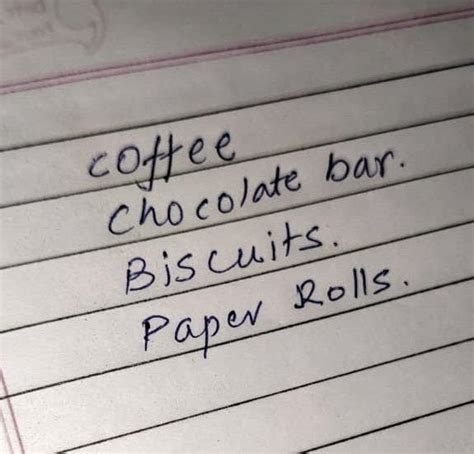 coffee
chocolate bar.
Biscuits.
Paper Rolls.